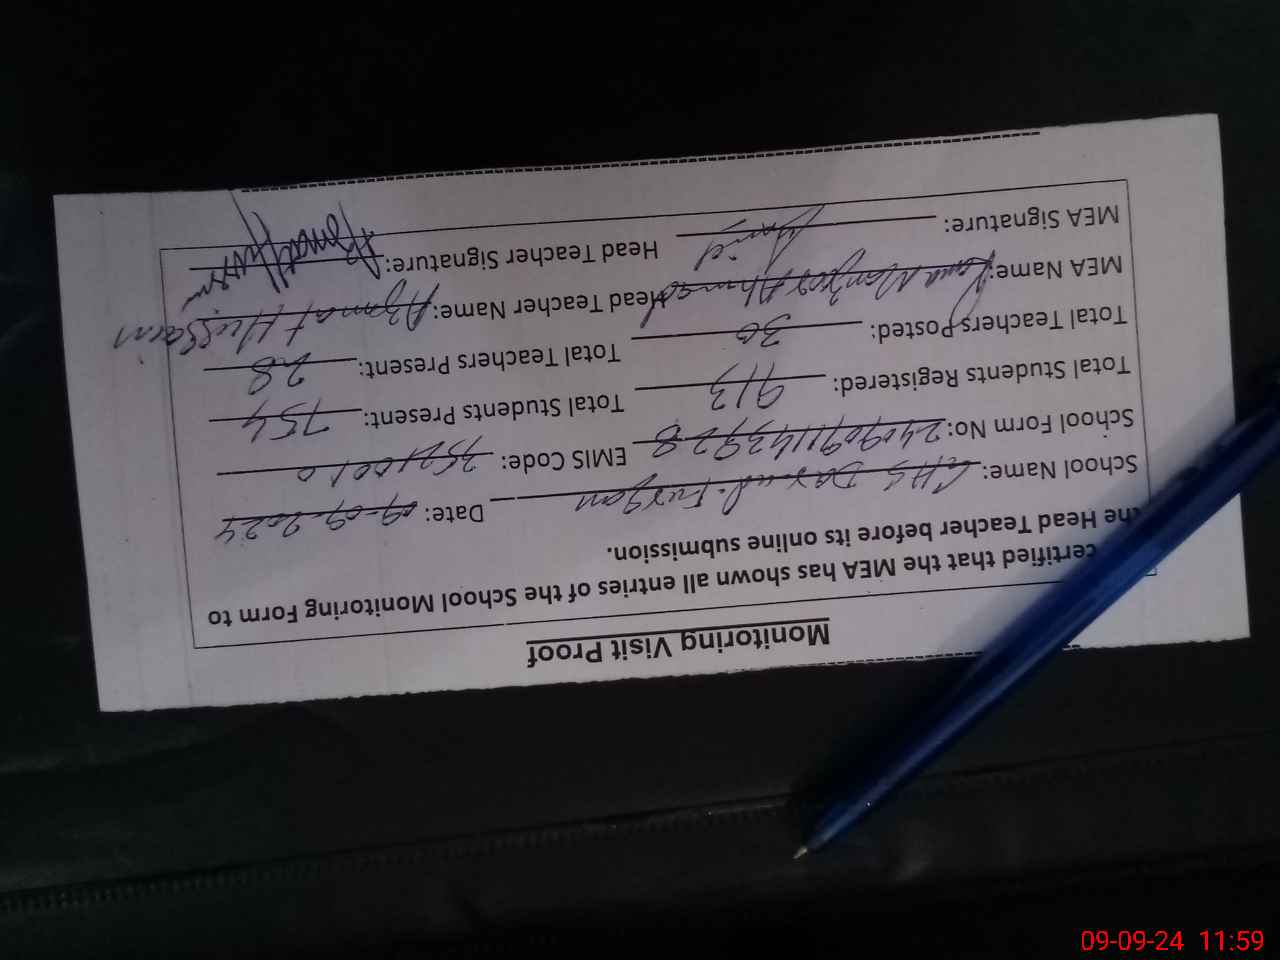 Monitoring Visit Proof
certified that the MEA has shown all entries of the School Monitoring Form to
the Head Teacher before its online submission.
School Name: GHS Dar-ul-Furqan Date: 09-09-2024
School Form No: EMIS Code: 35210010
Total Students Registered: 913 Total Students Present: 754
Total Teachers Posted: 30 Total Teachers Present: 28
MEA Name: Rana Manzoor Ahmad Head Teacher Name: Azmat Hussain
MEA Signature: Head Teacher Signature:
09-09-24 11:59